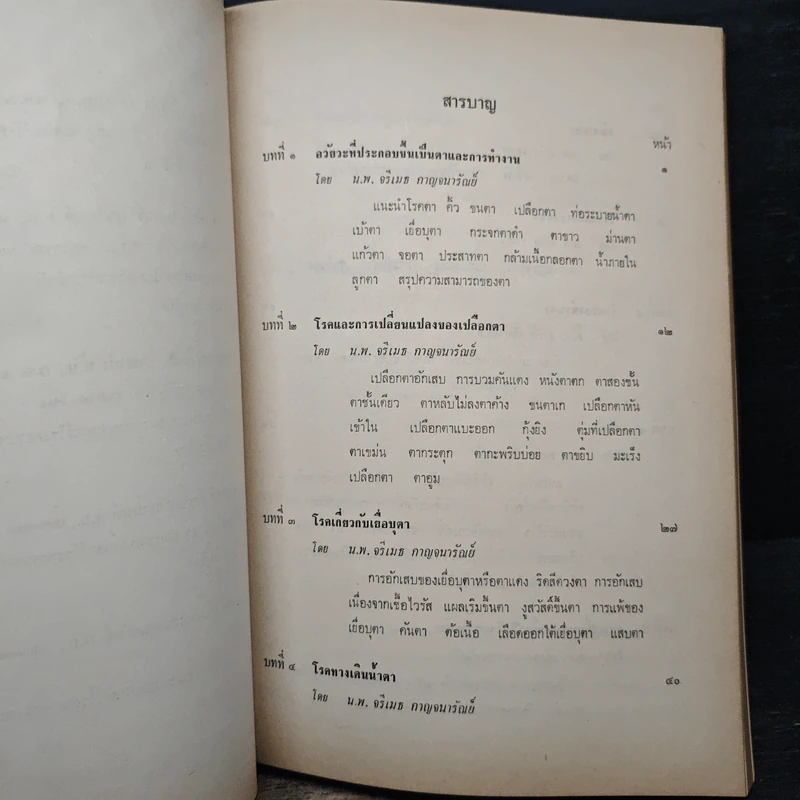 สารบาญ
หน้า
บทที่ ๑ อวัยวะที่ประกอบขึ้นเป็นตาและการทำงาน ๑
โดย น.พ. จรีเมธ กาญจนารัณย์
แนะนำโรคตา คิ้ว ขนตา เปลือกตา ท่อระบายน้ำตา
เบ้าตา เยื่อบุตา กระจกตาดำ ตาขาว ม่านตา
แก้วตา จอตา ประสาทตา กล้ามเนื้อกลอกตา น้ำภายใน
ลูกตา สรุปความสามารถของตา
บทที่ ๒ โรคและการเปลี่ยนแปลงของเปลือกตา ๑๒
โดย น.พ. จรีเมธ กาญจนารัณย์
เปลือกตาอักเสบ การบวมคันแดง หนังตาตก ตาสองชั้น
ตาชั้นเดียว ตาหลับไม่ลงตาค้าง ขนตาเก เปลือกตาหัน
เข้าใน เปลือกตาแบะออก กุ้งยิง ตุ่มที่เปลือกตา
ตาเขม่น ตากระตุก ตากะพริบบ่อย ตาขยิบ มะเร็ง
เปลือกตา ตาอูม
บทที่ ๓ โรคเกี่ยวกับเยื่อบุตา ๒๗
โดย น.พ. จรีเมธ กาญจนารัณย์
การอักเสบของเยื่อบุตาหรือตาแดง ริดสีดวงตา การอักเสบ
เนื่องจากเชื้อไวรัส แผลเริมขึ้นตา งูสวัสดิ์ขึ้นตา การแพ้ของ
เยื่อบุตา คันตา ต้อเนื้อ เลือดออกใต้เยื่อบุตา แสบตา
บทที่ ๔ โรคทางเดินน้ำตา ๔๐
โดย น.พ. จรีเมธ กาญจนารัณย์